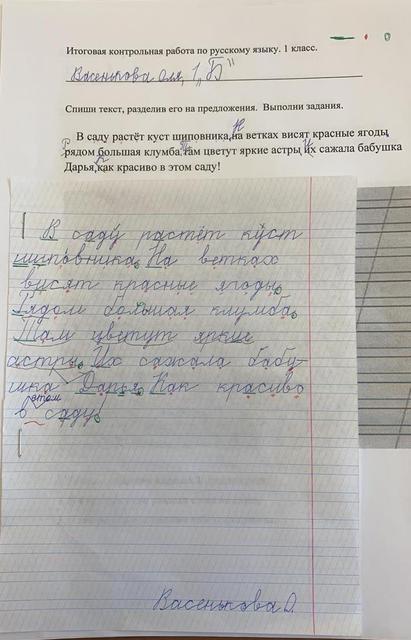 Итоговая контрольная работа по русскому языку. 1 класс.
Васенькова Оля, 1 „Б"
Спиши текст, разделив его на предложения. Выполни задания.
В саду растёт куст шиповника,на ветках висят красные ягоды,
рядом большая клумба,там цветут яркие астры,их сажала бабушка
Дарья,как красиво в этом саду!
В саду растёт куст
шиповника. На ветках
висят красные ягоды.
Рядом большая клумба.
Там цветут яркие
астры. Их сажала бабу-
шка Дарья. Как красиво
этом
в саду!
Васенькова О.